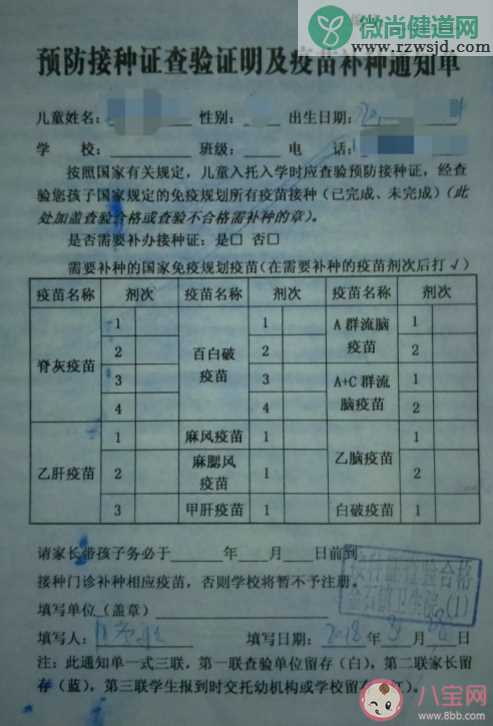 微尚健道网
www.rzwsjd.com
预防接种证查验证明及疫苗补种通知单
儿童姓名： 性别： 出生日期：
学 校： 班级： 电 话：
按照国家有关规定，儿童入托入学时应查验预防接种证，经查
验您孩子国家规定的免疫规划所有疫苗接种（已完成、未完成）（此
处加盖查验合格或查验不合格需补种的章）。
是否需要补办接种证：是□ 否□
需要补种的国家免疫规划疫苗（在需要补种的疫苗剂次后打√）
疫苗名称 剂次 疫苗名称 剂次 疫苗名称 剂次
脊灰疫苗 1 2 3 4
百白破疫苗 1 2 3 4
A群流脑疫苗 1 2
A+C群流脑疫苗 1 2
乙肝疫苗 1 2 3
麻风疫苗 1
麻腮风疫苗 1
甲肝疫苗 1
乙脑疫苗 1 2
白破疫苗 1
请家长带孩子务必于 年 月 日前到
接种门诊补种相应疫苗，否则学校将暂不予注册。
接种证查验合格
卫生院(1)
填写单位（盖章）
填写人： 填写日期：2018年3月 日
注：此通知单一式三联，第一联查验单位留存（白），第二联家长留
存（蓝），第三联学生报到时交托幼机构或学校留存（红）。
八宝网
www.8bb.com